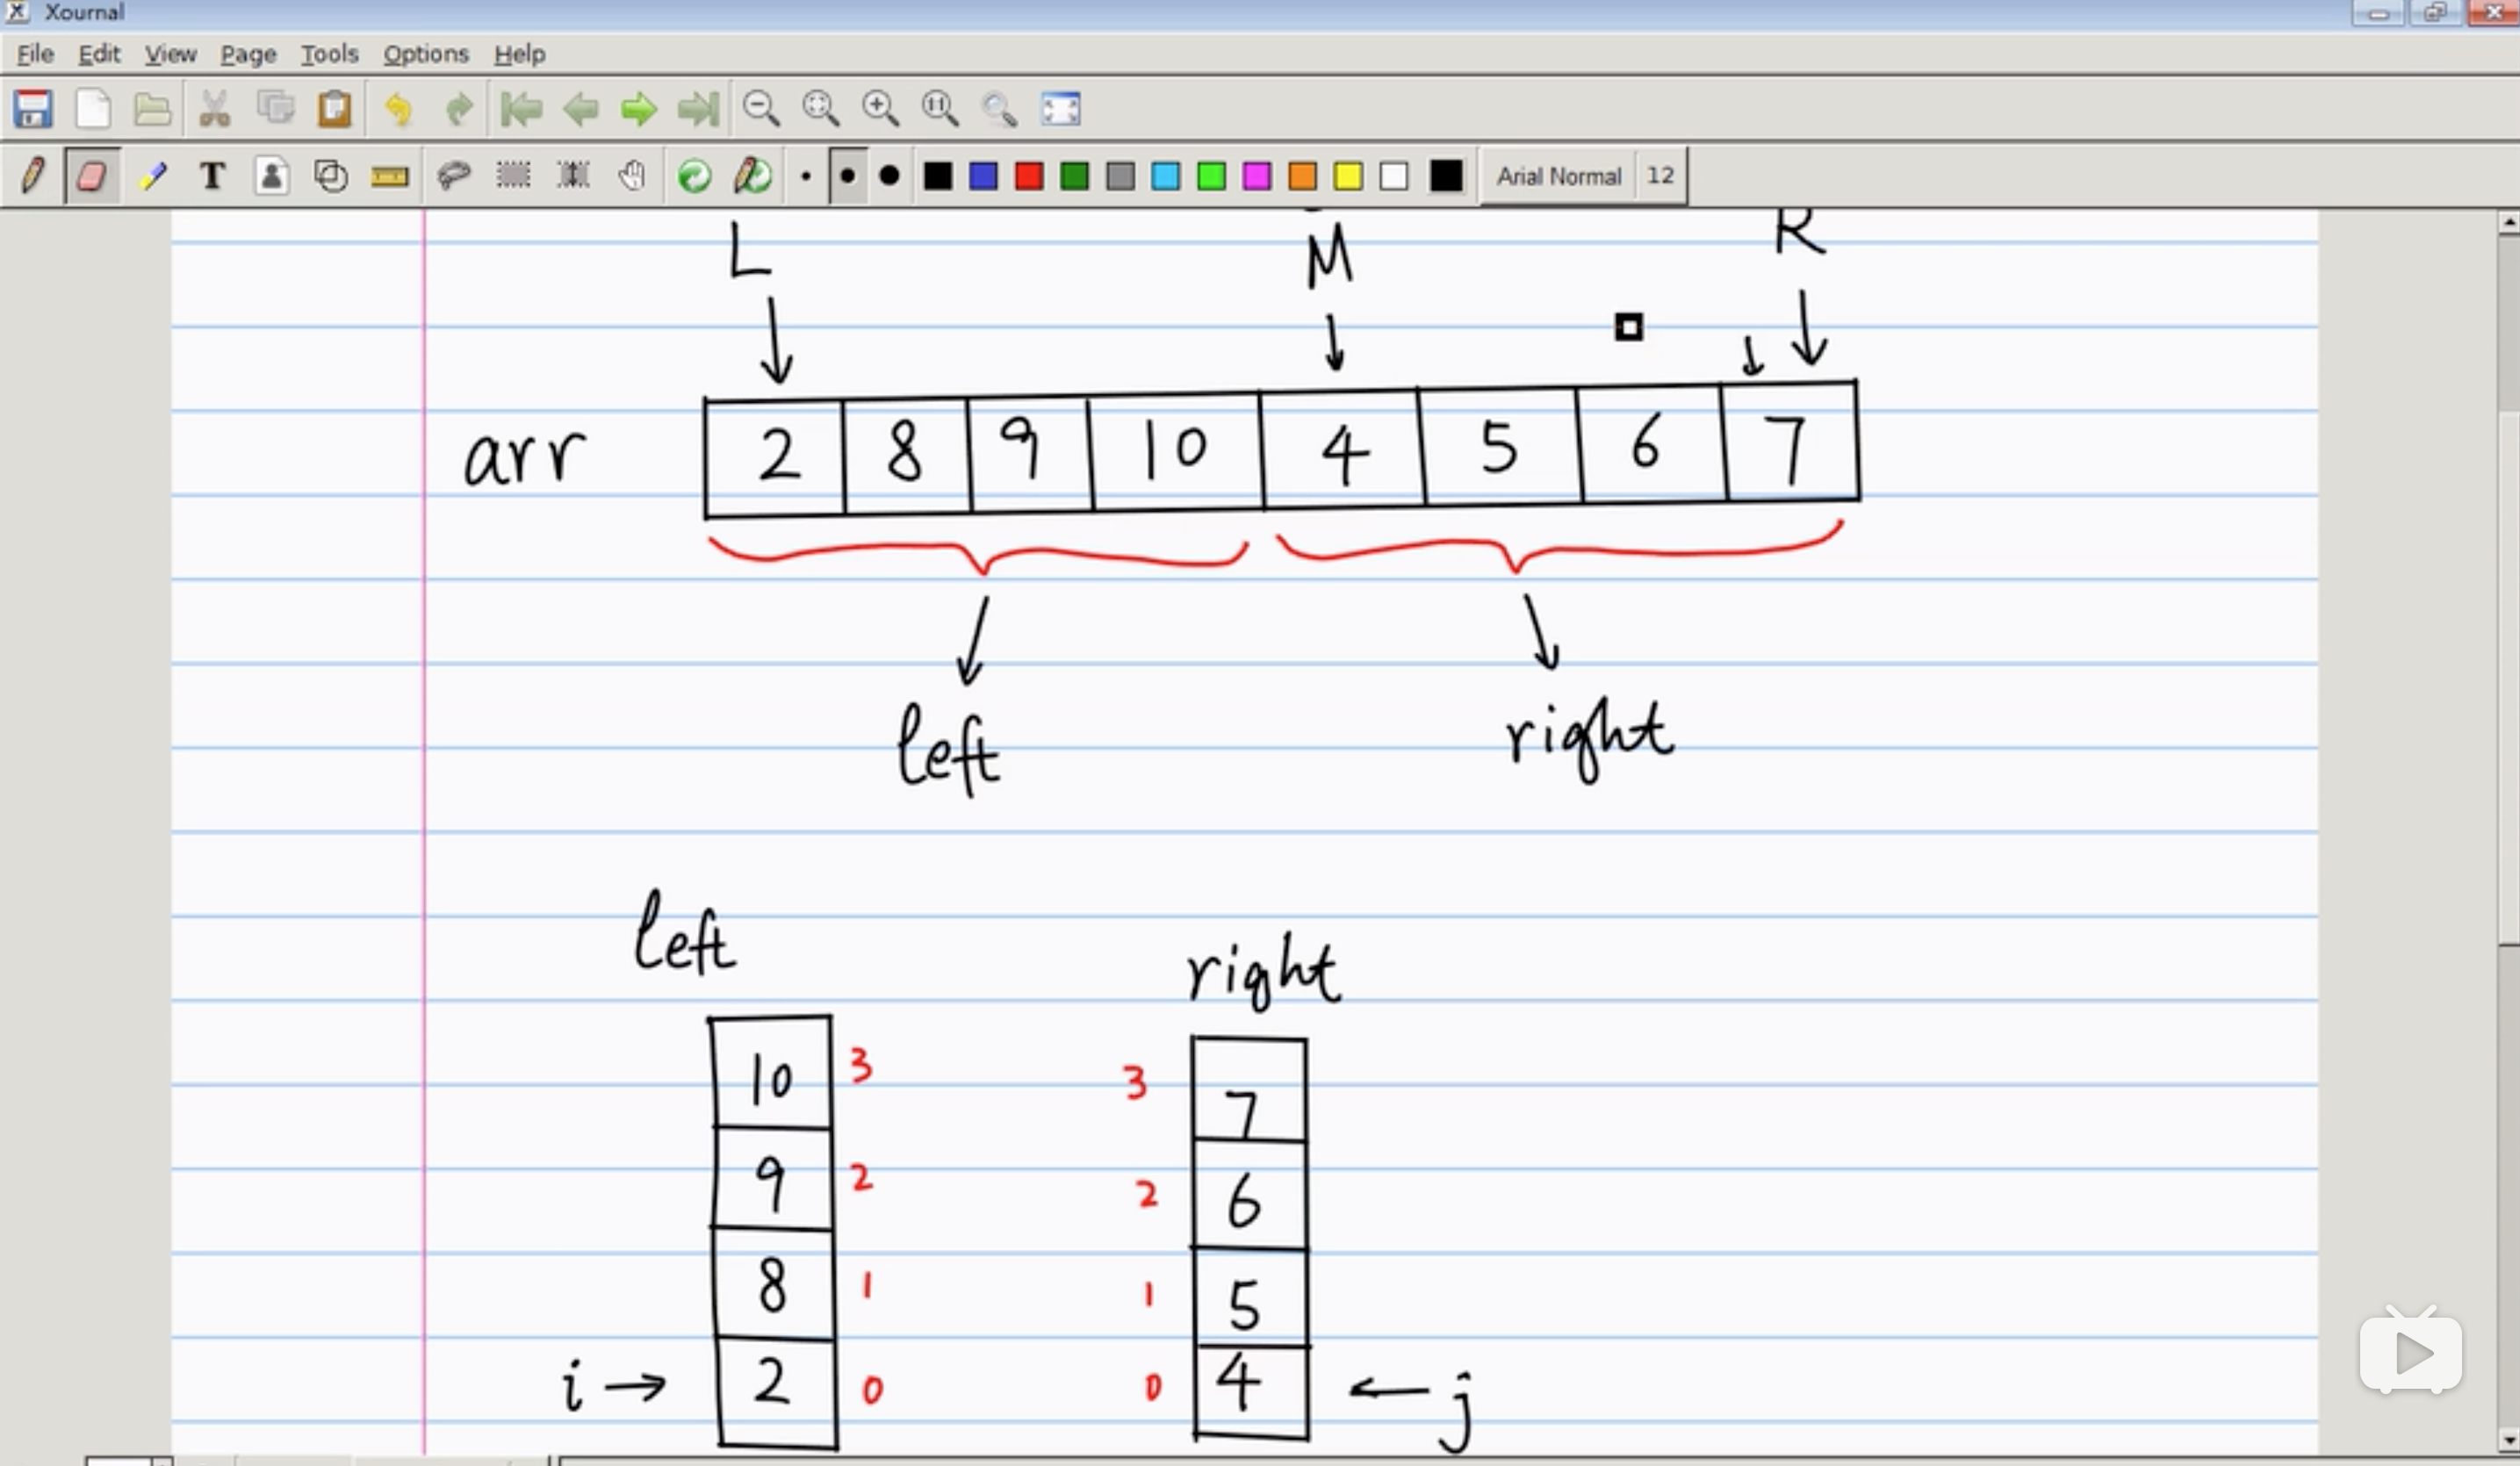 Xournal
File Edit View Page Tools Options Help
T Arial Normal 12
L M R
arr 2 8 9 10 4 5 6 7
left right
left
right
10 3 3 7
9 2 2 6
8 1 1 5
i → 2 0 0 4 ← j